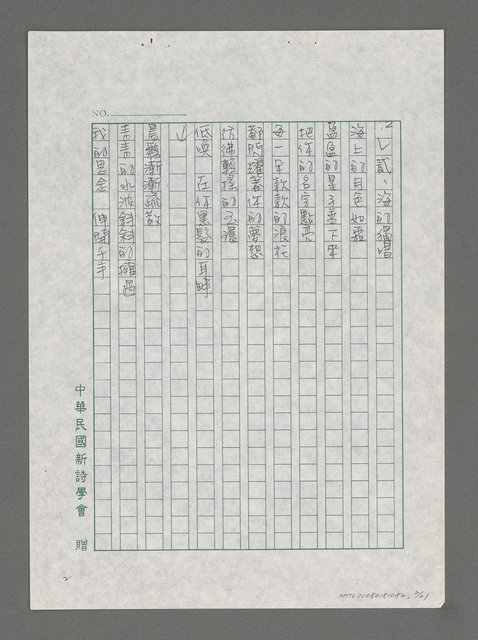 NO.
2 貳、海的獨唱
海上的月色如霜
盞盞的星子垂下來
把你的名字點亮
每一朵款款的浪花
都閃耀著你的夢想
彷彿輕搖的玉環
低喚 在你黑髮的耳畔
↓
晨霧漸漸疏散
青青的水波斜斜的擁過
我的思念 伸開千手
中華民國新詩學會 贈
2
NMTL20080181082, 2/21